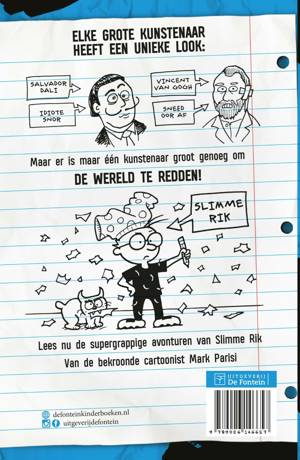 ELKE GROTE KUNSTENAAR
HEEFT EEN UNIEKE LOOK:
SALVADOR
DALI
IDIOTE
SNOR
VINCENT
VAN GOGH
SNEED
OOR AF
Maar er is maar één kunstenaar groot genoeg om
DE WERELD TE REDDEN!
SLIMME
RIK
Lees nu de supergrappige avonturen van Slimme Rik
Van de bekroonde cartoonist Mark Parisi
UITGEVERIJ
De Fontein
defonteinkinderboeken.nl
uitgeverijdefontein